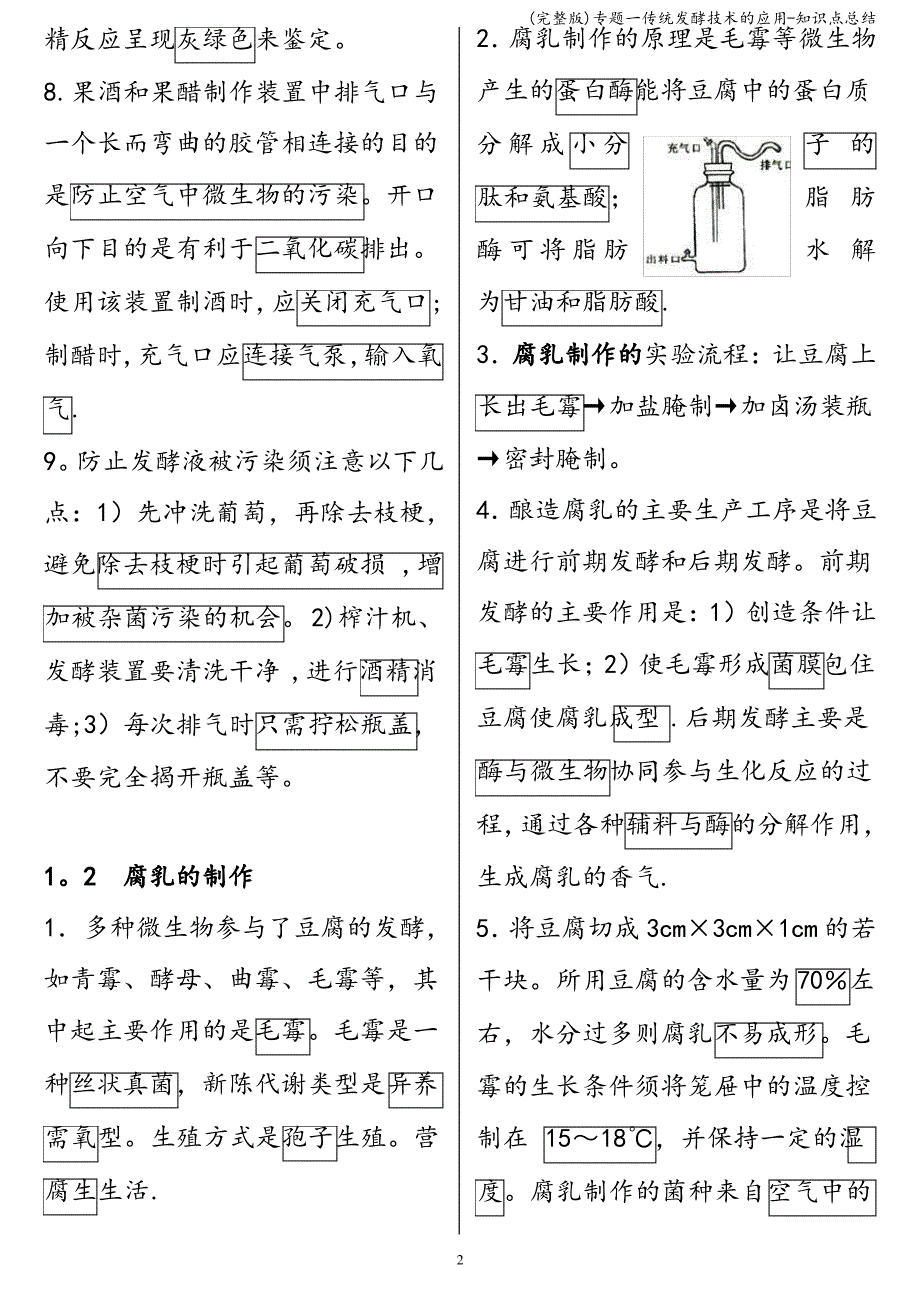 (完整版)专题一传统发酵技术的应用-知识点总结
精反应呈现灰绿色来鉴定。
8.果酒和果醋制作装置中排气口与
一个长而弯曲的胶管相连接的目的
是防止空气中微生物的污染。开口
向下目的是有利于二氧化碳排出。
使用该装置制酒时,应关闭充气口;
制醋时,充气口应连接气泵,输入氧
气.
9。防止发酵液被污染须注意以下几
点:1)先冲洗葡萄,再除去枝梗,
避免除去枝梗时引起葡萄破损 ,增
加被杂菌污染的机会。2)榨汁机、
发酵装置要清洗干净 ,进行酒精消
毒;3)每次排气时只需拧松瓶盖,
不要完全揭开瓶盖等。
1。2 腐乳的制作
1. 多种微生物参与了豆腐的发酵,
如青霉、酵母、曲霉、毛霉等,其
中起主要作用的是毛霉。毛霉是一
种丝状真菌,新陈代谢类型是异养
需氧型。生殖方式是孢子生殖。营
腐生生活.
2.腐乳制作的原理是毛霉等微生物
产生的蛋白酶能将豆腐中的蛋白质
分解成小分子的
肽和氨基酸;脂肪
酶可将脂肪水解
为甘油和脂肪酸.
充气口
排气口
出料口
3.腐乳制作的实验流程:让豆腐上
长出毛霉→加盐腌制→加卤汤装瓶
→密封腌制。
4.酿造腐乳的主要生产工序是将豆
腐进行前期发酵和后期发酵。前期
发酵的主要作用是:1)创造条件让
毛霉生长;2)使毛霉形成菌膜包住
豆腐使腐乳成型.后期发酵主要是
酶与微生物协同参与生化反应的过
程,通过各种辅料与酶的分解作用,
生成腐乳的香气.
5.将豆腐切成3cm×3cm×1cm的若
干块。所用豆腐的含水量为70%左
右,水分过多则腐乳不易成形。毛
霉的生长条件须将笼屉中的温度控
制在 15～18℃,并保持一定的湿
度。腐乳制作的菌种来自空气中的
2